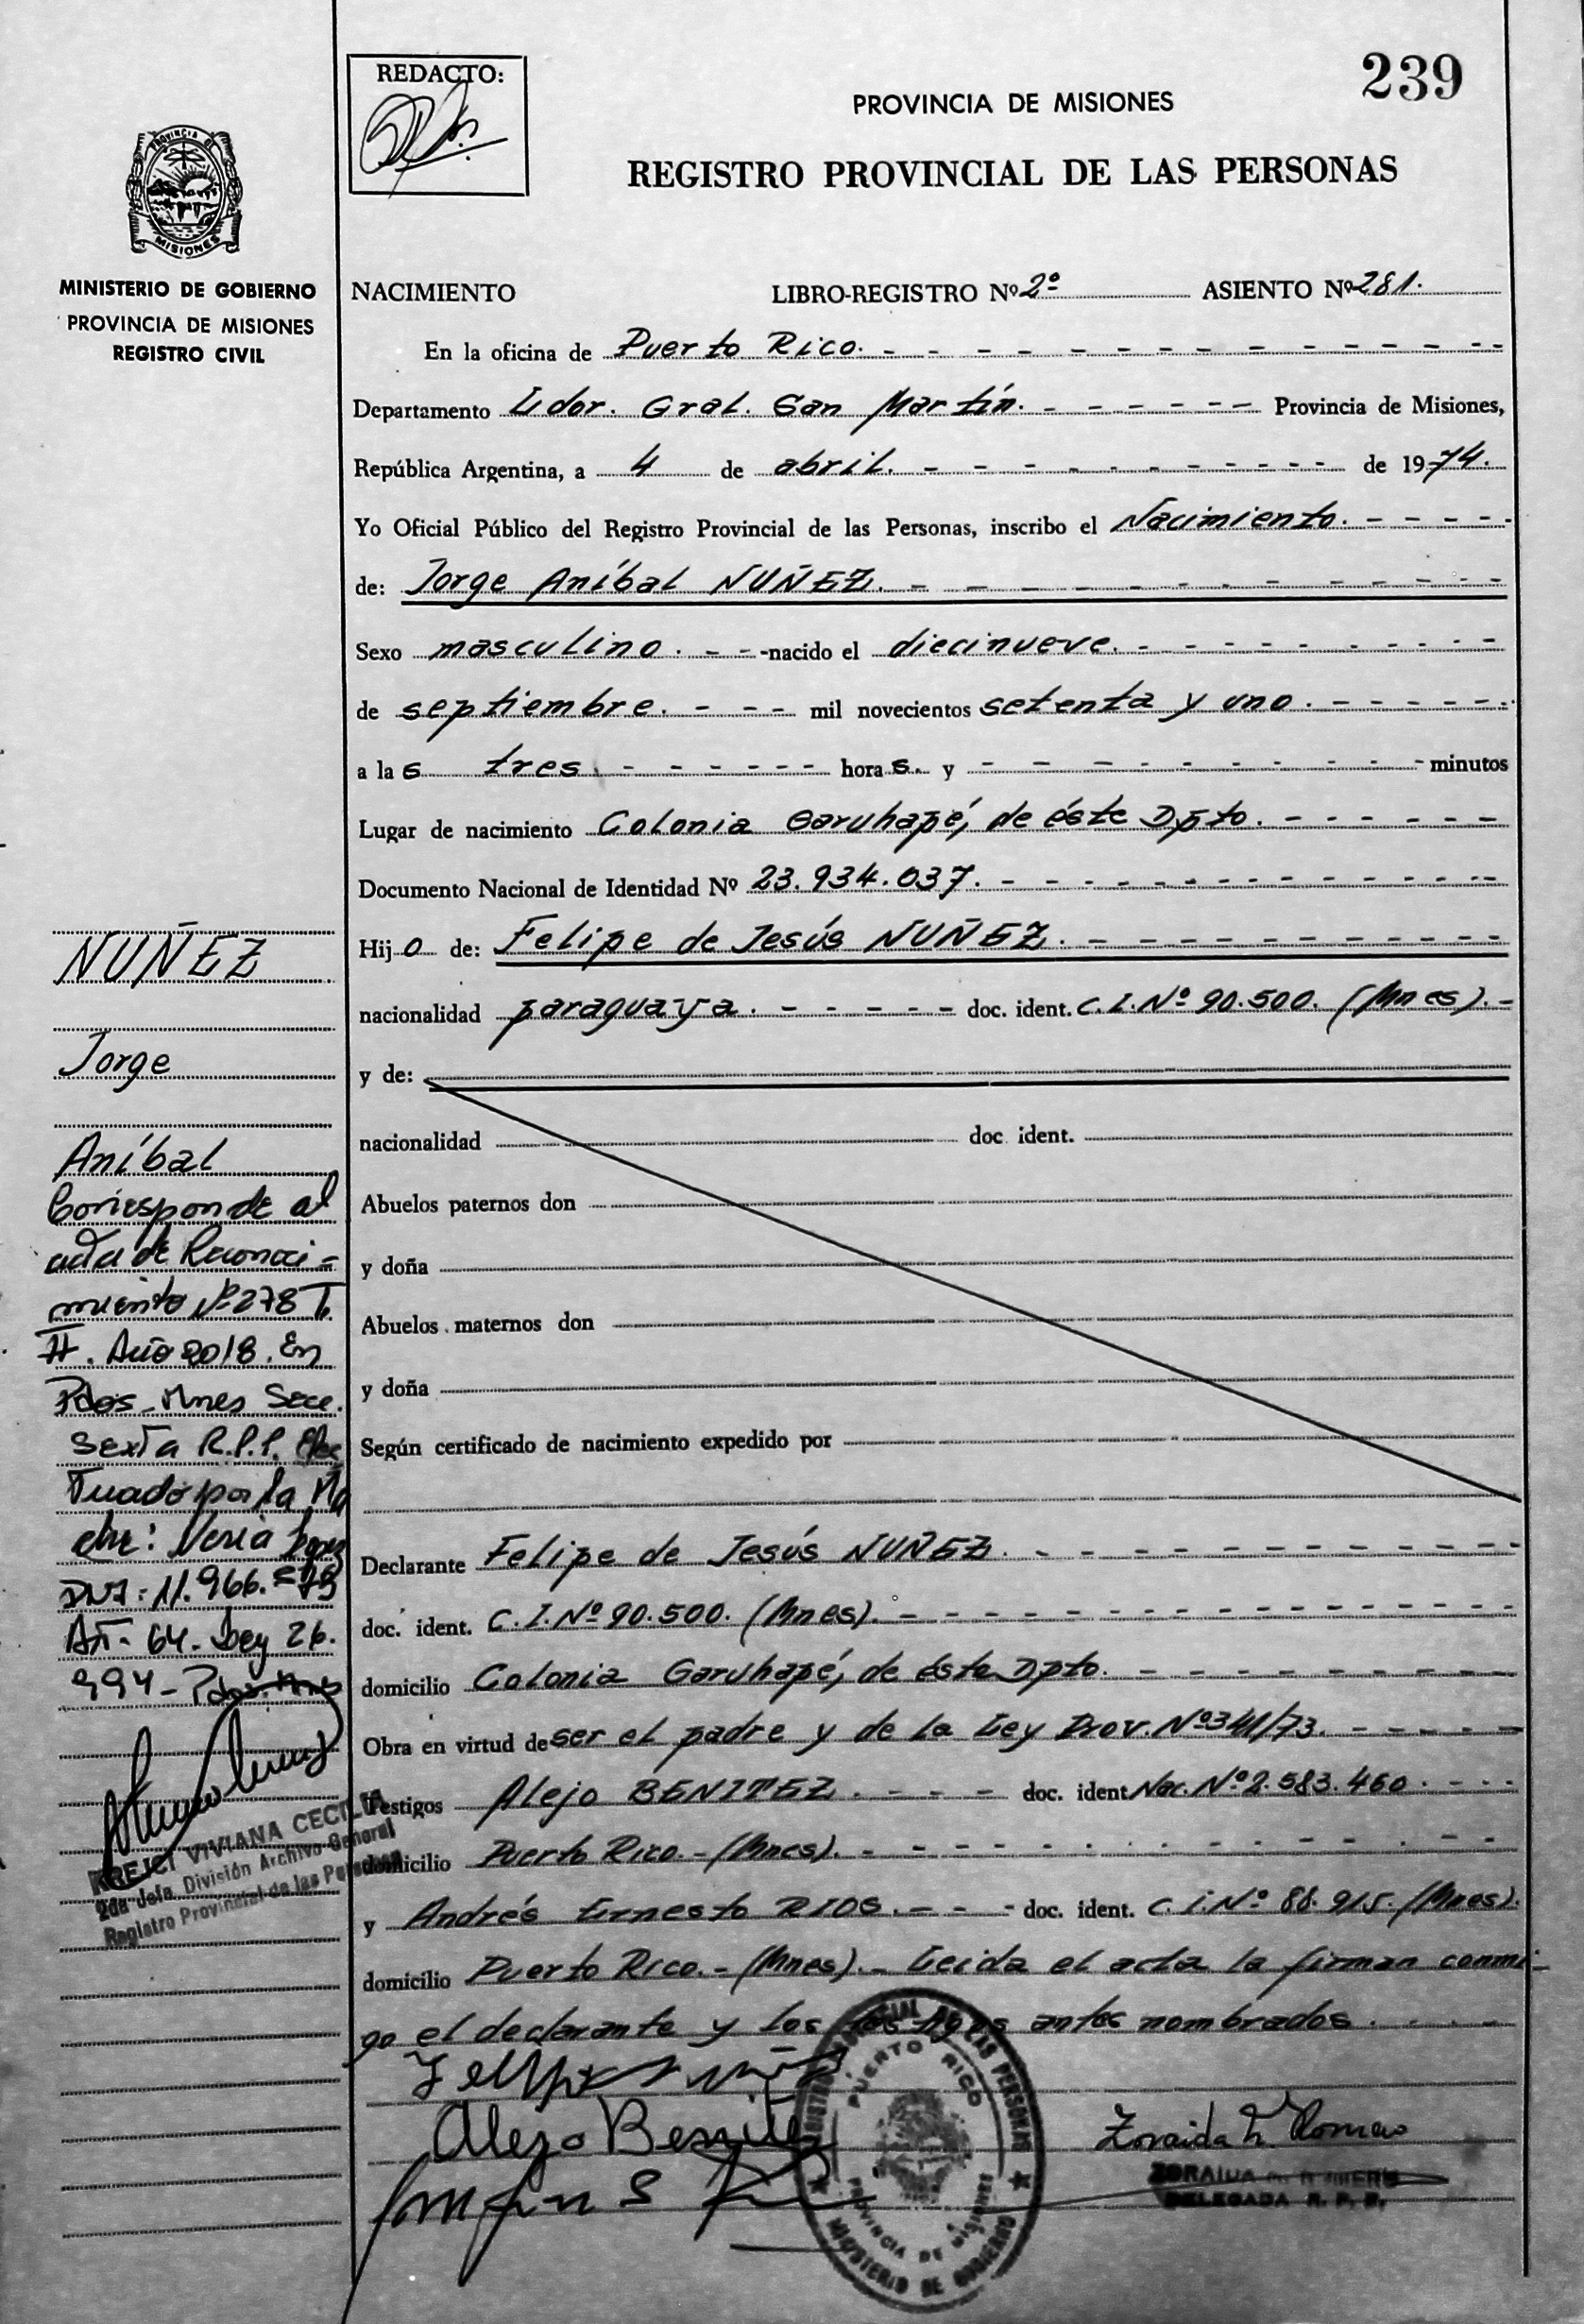 239
REDACTO:
PROVINCIA DE MISIONES
REGISTRO PROVINCIAL DE LAS PERSONAS
PROVINCIA DE
MISIONES
MINISTERIO DE GOBIERNO
PROVINCIA DE MISIONES
REGISTRO CIVIL
NACIMIENTO LIBRO-REGISTRO Nº 2º ASIENTO Nº 281.
En la oficina de Puerto Rico.
Departamento Ldor. Gral. San Martín. Provincia de Misiones,
República Argentina, a 4 de abril. de 1974.
Yo Oficial Público del Registro Provincial de las Personas, inscribo el Nacimiento.
de: Jorge Aníbal NUÑEZ.
Sexo masculino. nacido el diecinueve.
de septiembre. mil novecientos setenta y uno.
a las tres. horas. y minutos
Lugar de nacimiento Colonia Garuhapé, de éste Dpto.
Documento Nacional de Identidad Nº 23.934.037.
Hijo de: Felipe de Jesús NUÑEZ.
nacionalidad paraguaya. doc. ident. C.I.Nº 90.500. (Mnes).
y de:
nacionalidad doc. ident.
Abuelos paternos don
y doña
Abuelos maternos don
y doña
Según certificado de nacimiento expedido por
Declarante Felipe de Jesús NUÑEZ.
doc. ident. C.I.Nº 90.500. (Mnes).
domicilio Colonia Garuhapé, de éste Dpto.
Obra en virtud de ser el padre y de la Ley Prov. Nº 341/73.
Testigos Alejo BENITEZ. doc. ident Nac. Nº 2.583.460.
domicilio Puerto Rico.-(Mnes).
y Andrés Ernesto RIOS. doc. ident. C.I.Nº 88.915. (Mnes).
domicilio Puerto Rico.-(Mnes).- Leida el acta la firman conmi-
go el declarante y los testigos antes nombrados.
Alejo Benitez
Zoraida Romero
ZORAIDA
DELEGADA R. P. P.
REGISTRO PROVINCIAL DE LAS PERSONAS
PUERTO RICO
PROVINCIA DE MISIONES
MINISTERIO DE GOBIERNO
NUÑEZ
Jorge
Aníbal
Corresponde al
acta de Reconoci-
miento Nº 278 T.
II. Año 2018. En
Pdas-Mnes Secc.
Sexta R.P.P. Efec
tuado por la Ma
dre:
DNI: 11.966.
Art- 64- Ley 26.
994- Pdas. Mnes
KREJCI VIVIANA CECILIA
2da Jefa División Archivo General
Registro Provincial de las Personas